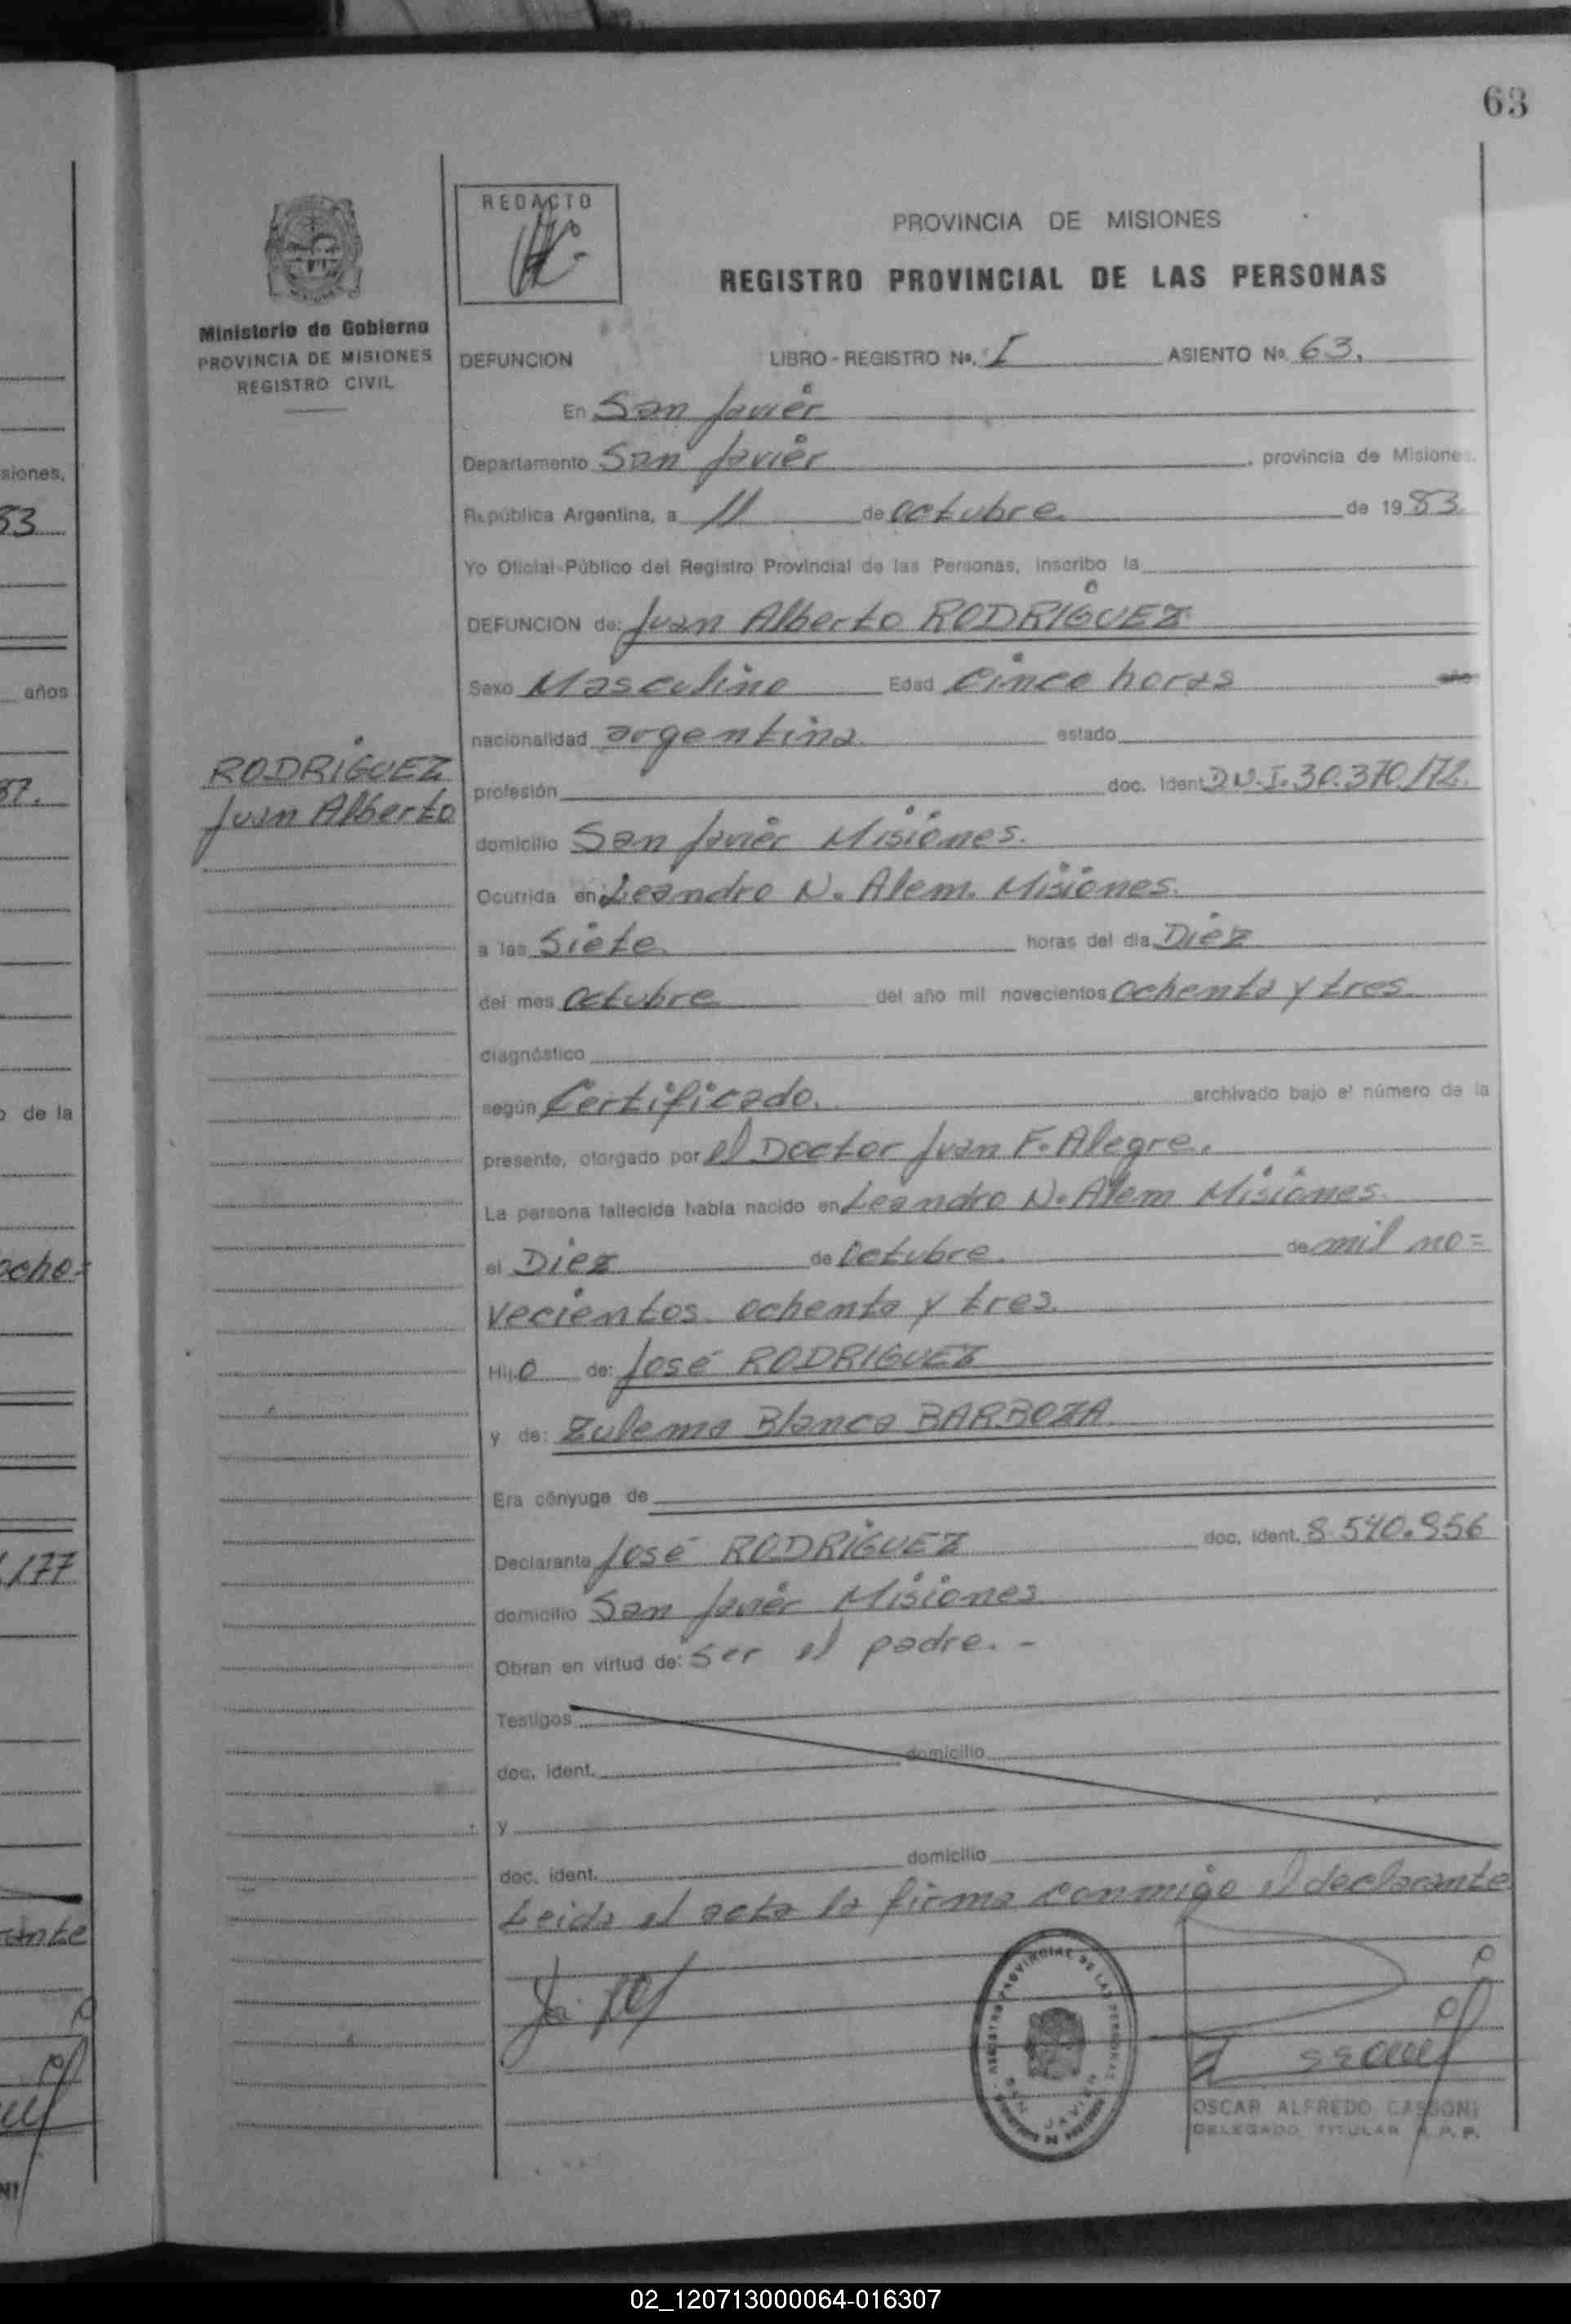 63
siones,
83
años
87.
o de la
ocho=
.177
ante
NI
Ministerio de Gobierno
PROVINCIA DE MISIONES
REGISTRO CIVIL
RODRIGUEZ
Juan Alberto
REDACTO
PROVINCIA DE MISIONES
REGISTRO PROVINCIAL DE LAS PERSONAS
DEFUNCION LIBRO - REGISTRO No. I ASIENTO No. 63.
En San Javier
Departamento San Javier, provincia de Misiones.
República Argentina, a 11 de octubre. de 1983.
Yo Oficial Público del Registro Provincial de las Personas, inscribo la
DEFUNCION de: Juan Alberto RODRIGUEZ
Sexo Masculino Edad Cinco horas
nacionalidad argentina. estado
profesión doc. Ident. D.N.I. 30.370.172.
domicilio San Javier Misiones.
Ocurrida en Leandro N. Alem. Misiones.
a las Siete horas del día Diez
del mes Octubre del año mil novecientos ochenta y tres
diagnóstico
según Certificado. archivado bajo el número de la
presente, otorgado por el Doctor Juan F. Alegre.
La persona fallecida había nacido en Leandro N. Alem Misiones.
el Diez de Octubre. de mil no=
vecientos. ochenta y tres
Hijo de: José RODRIGUEZ
y de: Zulema Blanca BARBOZA
Era cónyuge de
Declarante José RODRIGUEZ doc. ident. 8.540.956
domicilio San Javier Misiones
Obran en virtud de: Ser el padre. -
Testigos
doc. ident. domicilio
y
doc. ident. domicilio
Leida el acta la firma conmigo el declarante
REGISTRO PROVINCIAL DE LAS PERSONAS
SAN JAVIER
OSCAR ALFREDO CASSONI
DELEGADO TITULAR R. P. P.
02_120713000064-016307